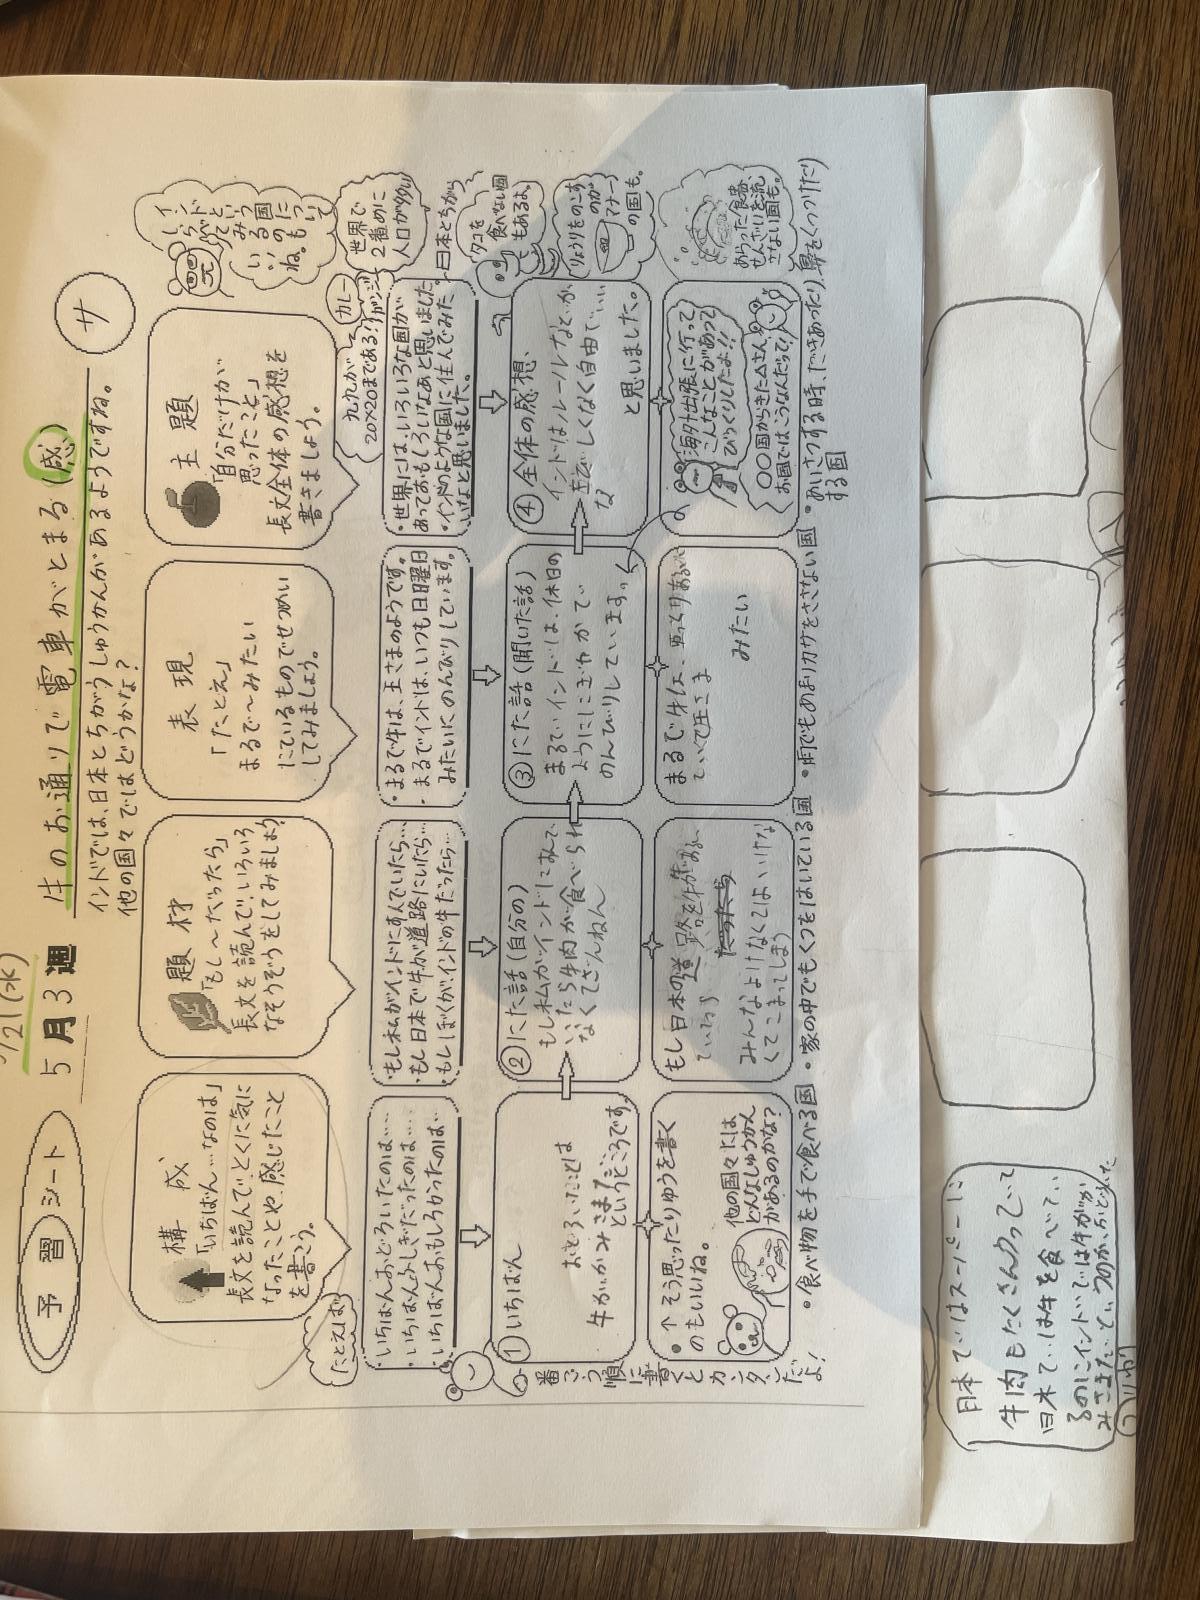 予習シート
5/21(水)
5月3週
牛のお通りで電車がとまる(感)
サ
インドでは、日本とちがうしゅうかんがあるようですね。
他の国々ではどうかな?
構成
「いちばん…なのは」
長文を読んでとくに気に
なったことや、感じたこと
を書こう。
題材
「もし~だったら」
長文を読んで、いろいろ
なそうぞうをしてみましょう
表現
「たとえ」
まるで~みたい
にているものでせつめい
してみましょう。
主題
「自分だけが
思ったこと」
長文全体の感想を
書きましょう。
たとえば
・いちばんおどろいたのは…
・いちばんふしぎだったのは…
・いちばんおもしろかったのは…
・もし私がインドにすんでいたら…
・もし日本で牛が道路にいたら…
・もしぼくがインドの牛だったら…
・まるで牛は、王さまのようです。
・まるでインドは、いつも日曜日
みたいにのんびりしています。
・世界には、いろいろな国が
あっておもしろいなあと思いました
・インドのような国に住んでみた
いなと思いました。
九九が
20×20まである!
カレー
世界で
2番めに
人口が多い
番ごう順に書くとカンタンだよ!
①いちばん
おどろいたことは
牛がかみさまだ
というところです。
②にた話(自分の)
もし私がインドにすんで
いたら牛肉が食べられ
なくてざんねん
③にた話(聞いた話)
まるでインドは、休日の
ようににぎやかで
のんびりしています。
④全体の感想、
インドはルールなどが
なく自由でいい
と思いました。
・↑そう思ったりゆうを書く
のもいいね。
他の国々には
どんなしゅうかん
があるのかな?
もし日本の道路を牛があるい
ていたら
みんなよけなくてはいけな
くてこまってしまう
まるで牛は、
ていて王さま
みたい
海外出張に行って
こんなことがあって
びっくりしたよ!!
〇〇国からきた△さん
お国ではこうなんだって!
日本とちがう
タコを
食べない国
もあるよ。
りょうりをのこす
のが
マナー
の国も。
あらった食器
せんざいを流
さない国も。
・食べ物を手で食べる国
・家の中でもくつをはいている国
・雨でもあまりカサをささない国
・あいさつする時、だきあったり、鼻をくっつけたり
する国
日本ではスーパーに
牛肉もたくさんうっていて
日本では牛を食べてい
るのにインドでは牛がか
みさまだ